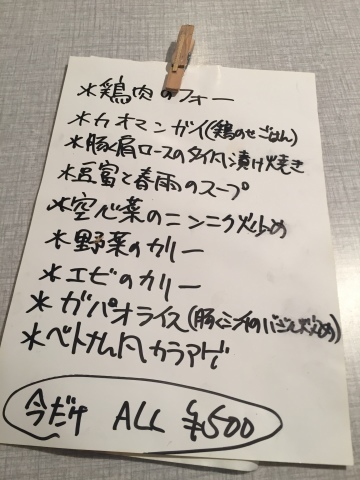 *鶏肉のフォー
*カオマンガイ(鶏のせごはん)
*豚肩ロースのタイ風漬け焼き
*豆富と春雨のスープ
*空心菜のニンニク炒め
*野菜のカリー
*エビのカリー
*ガパオライス(豚ミンチのバジル炒め)
*ベトナム風カラアゲ
今だけ ALL ¥500